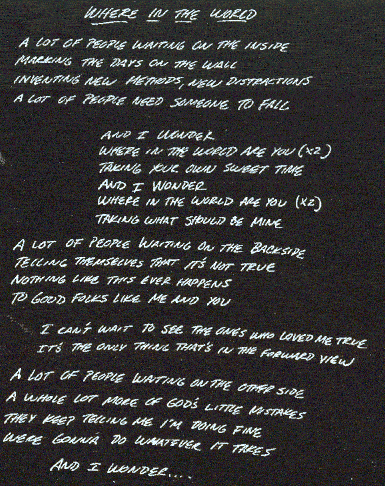 WHERE IN THE WORLD
A LOT OF PEOPLE WAITING ON THE INSIDE
MARKING THE DAYS ON THE WALL
INVENTING NEW METHODS, NEW DISTRACTIONS
A LOT OF PEOPLE NEED SOMEONE TO FALL
AND I WONDER
WHERE IN THE WORLD ARE YOU (X2)
TAKING YOUR OWN SWEET TIME
AND I WONDER
WHERE IN THE WORLD ARE YOU (X2)
TAKING WHAT SHOULD BE MINE
A LOT OF PEOPLE WAITING ON THE BACKSIDE
TELLING THEMSELVES THAT IT'S NOT TRUE
NOTHING LIKE THIS EVER HAPPENS
TO GOOD FOLKS LIKE ME AND YOU
I CAN'T WAIT TO SEE THE ONES WHO LOVED ME TRUE
IT'S THE ONLY THING THAT'S IN THE FORWARD VIEW
A LOT OF PEOPLE WAITING ON THE OTHER SIDE
A WHOLE LOT MORE OF GOD'S LITTLE MISTAKES
THEY KEEP TELLING ME I'M DOING FINE
WERE GONNA DO WHATEVER IT TAKES
AND I WONDER....